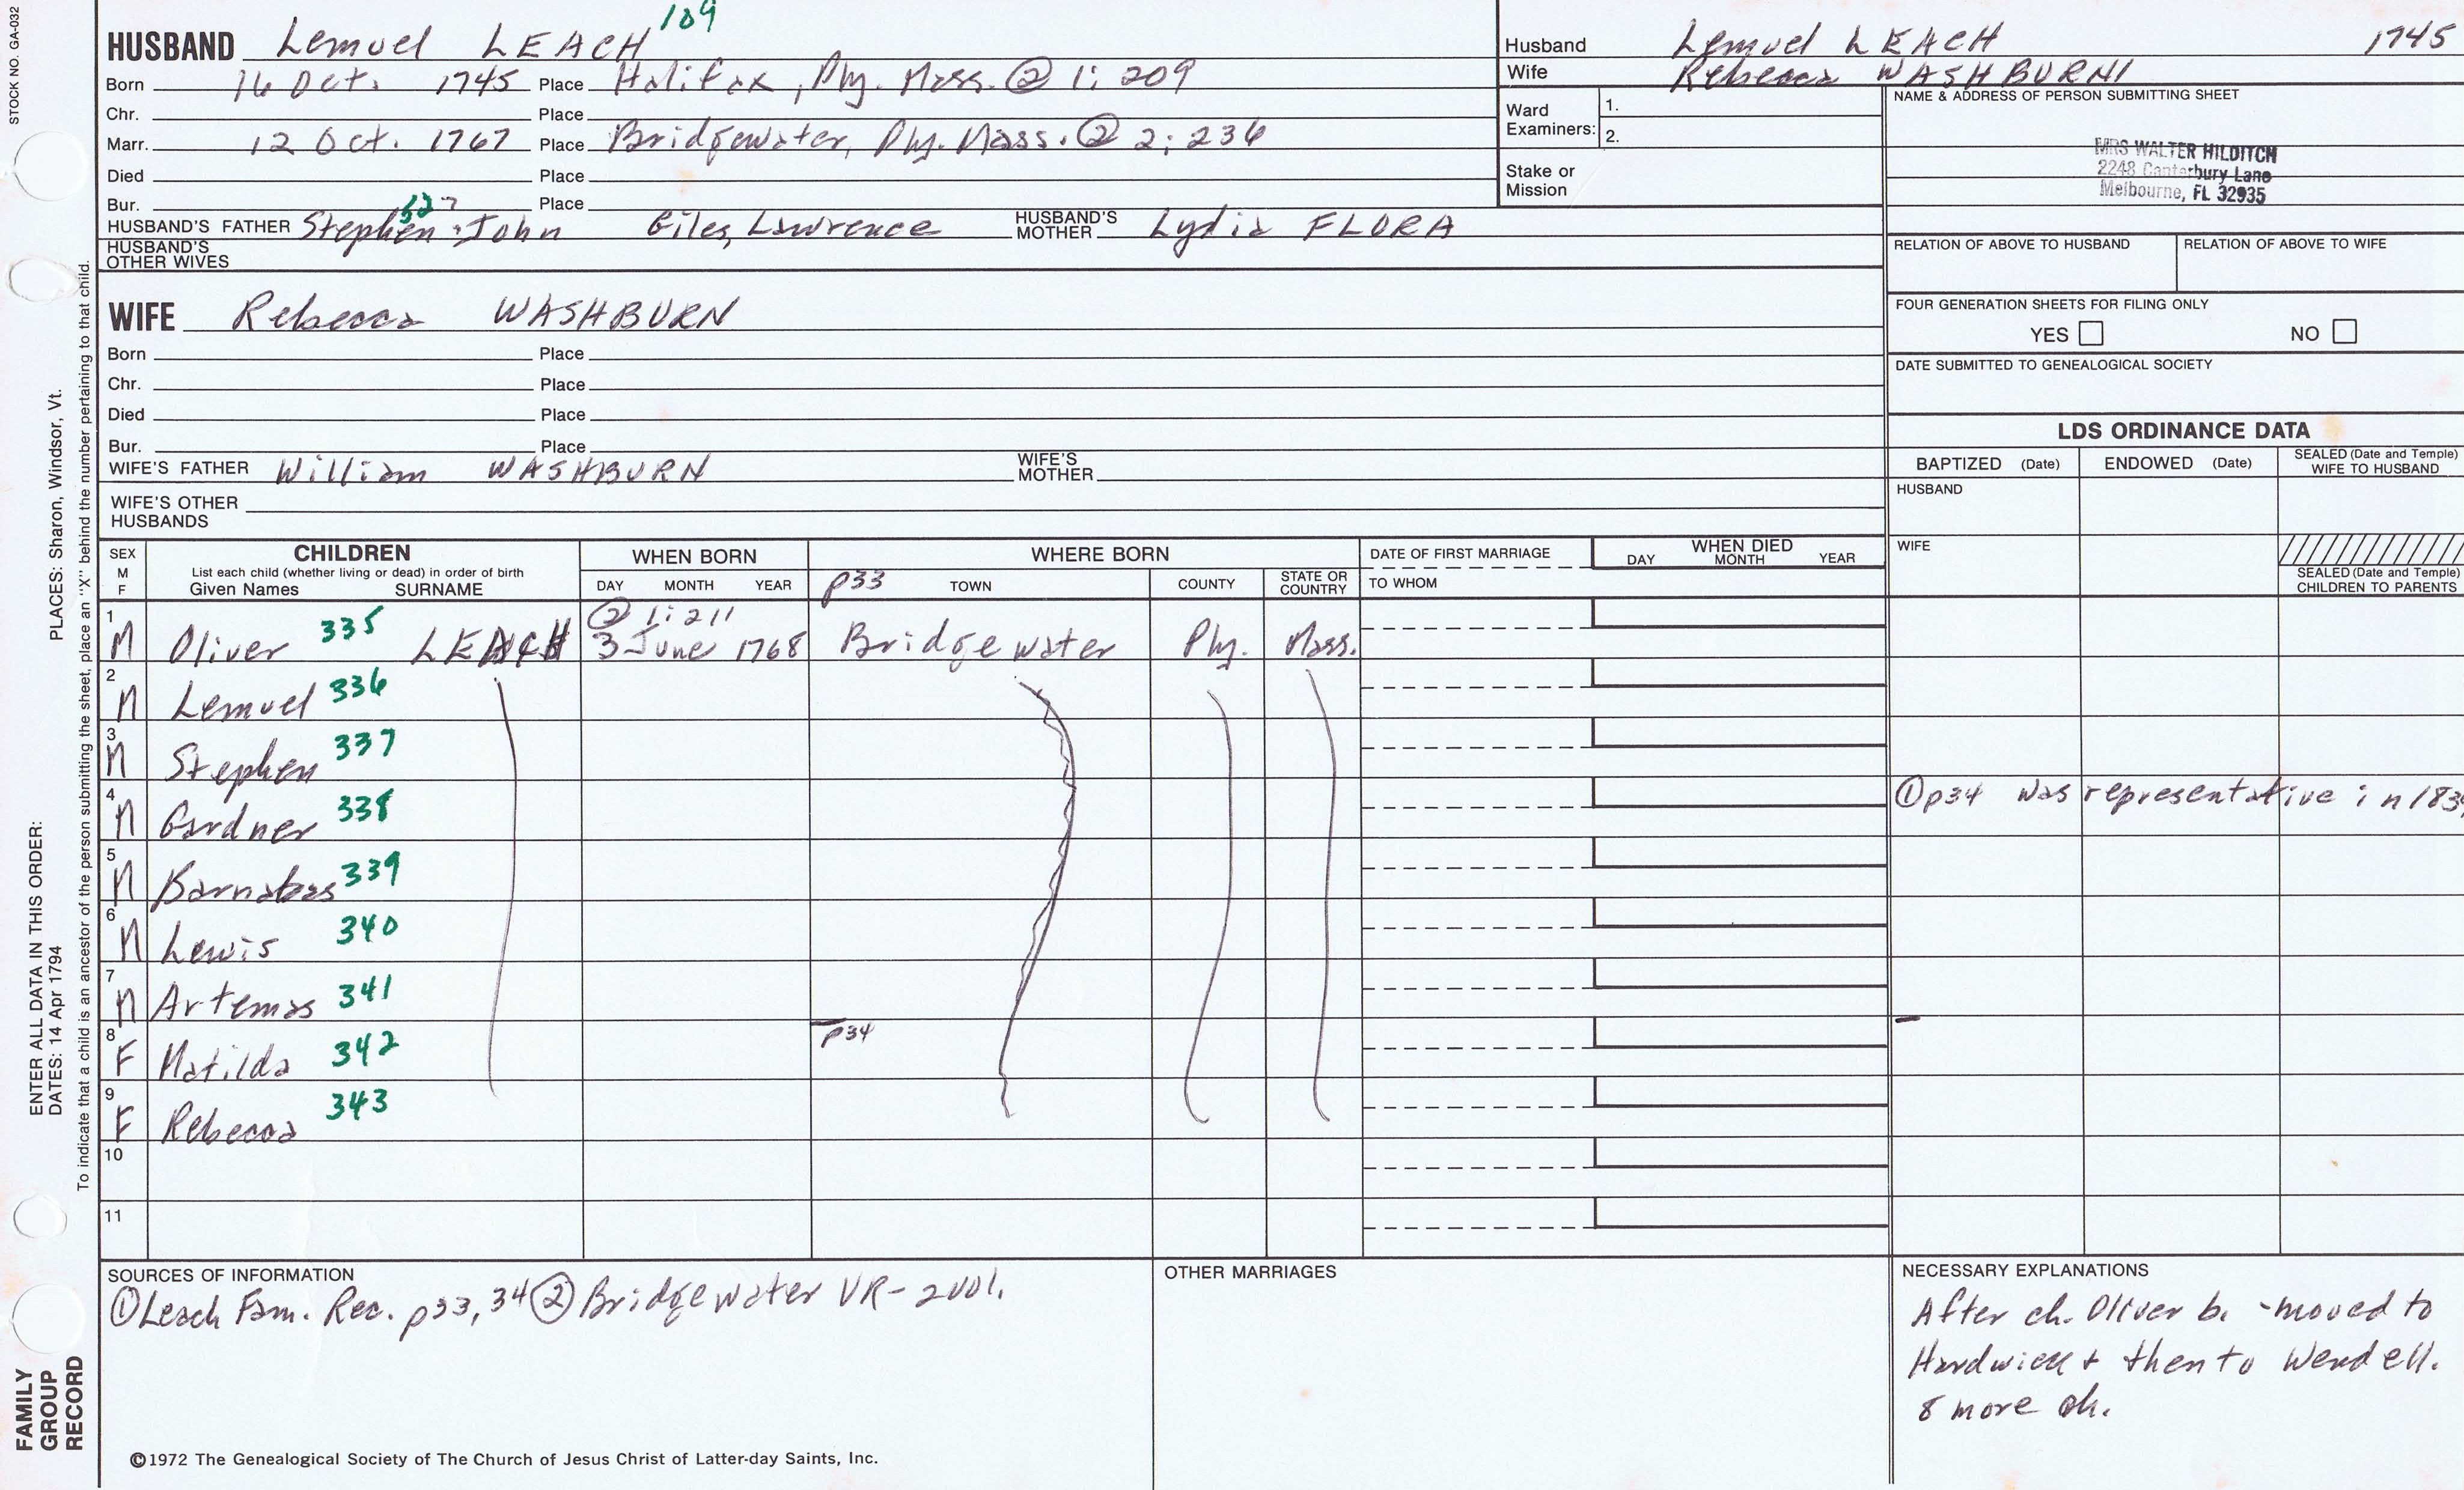 STOCK NO. GA-032
109
HUSBAND Lemuel LEACH
Born 16 Oct. 1745 Place Halifax, Ply. Mass. ② 1:209
Chr. Place
Marr. 12 Oct. 1767 Place Bridgewater, Ply. Mass. ② 2:236
Died Place
Bur. Place
HUSBAND'S FATHER Stephen, John Giles, Lawrence HUSBAND'S MOTHER Lydia FLORA
HUSBAND'S OTHER WIVES
Husband Lemuel LEACH 1745
Wife Rebecca WASHBURN
Ward Examiners: 1.
2.
Stake or Mission
NAME & ADDRESS OF PERSON SUBMITTING SHEET
MRS WALTER HILDITCH
2248 Canterbury Lane
Melbourne, FL 32935
RELATION OF ABOVE TO HUSBAND RELATION OF ABOVE TO WIFE
FOUR GENERATION SHEETS FOR FILING ONLY
YES NO
DATE SUBMITTED TO GENEALOGICAL SOCIETY
WIFE Rebecca WASHBURN
Born Place
Chr. Place
Died Place
Bur. Place
WIFE'S FATHER William WASHBURN WIFE'S MOTHER
WIFE'S OTHER HUSBANDS
LDS ORDINANCE DATA
BAPTIZED (Date) ENDOWED (Date) SEALED (Date and Temple) WIFE TO HUSBAND
HUSBAND
WIFE
SEALED (Date and Temple) CHILDREN TO PARENTS
SEX M F
CHILDREN
List each child (whether living or dead) in order of birth
Given Names SURNAME
WHEN BORN
DAY MONTH YEAR
WHERE BORN
p33 TOWN COUNTY STATE OR COUNTRY
DATE OF FIRST MARRIAGE
TO WHOM
WHEN DIED
DAY MONTH YEAR
② 1:211
1 M Oliver 335 LEACH 3 June 1768 Bridgewater Ply. Mass.
2 M Lemuel 336
3 M Stephen 337
4 M Gardner 338 ① p34 was representative in 183
5 M Barnabas 339
6 M Lewis 340
7 M Artemas 341
p34
8 F Matilda 342
9 F Rebecca 343
10
11
SOURCES OF INFORMATION
① Leach Fam. Rec. p33, 34 ② Bridgewater VR - 2 vol.
OTHER MARRIAGES
NECESSARY EXPLANATIONS
After ch. Oliver b. - moved to
Hardwick + then to Wendell.
8 more ch.
©1972 The Genealogical Society of The Church of Jesus Christ of Latter-day Saints, Inc.
FAMILY GROUP RECORD
ENTER ALL DATA IN THIS ORDER:
DATES: 14 Apr 1794 PLACES: Sharon, Windsor, Vt.
To indicate that a child is an ancestor of the person submitting the sheet, place an "X" behind the number pertaining to that child.